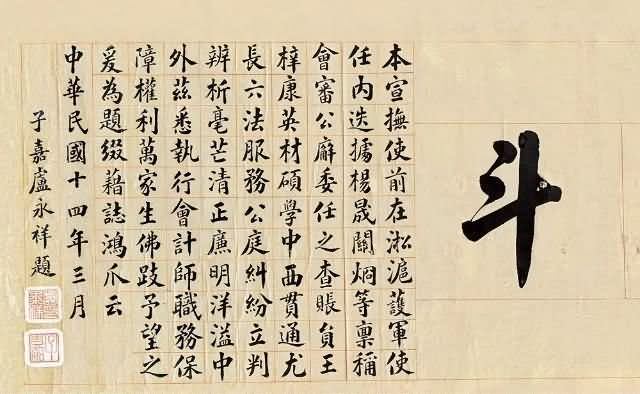 斗
本宣撫使前在淞滬護軍使
任内迭據楊晟關炯等稟稱
會審公廨委任之查賬員王
梓康英材碩學中西貫通尤
長六法服務公庭糾紛立判
辨析毫芒清正廉明洋溢中
外茲悉執行會計師職務保
障權利萬家生佛跂予望之
爰為題綴藉誌鴻爪云
中華民國十四年三月
子嘉盧永祥題